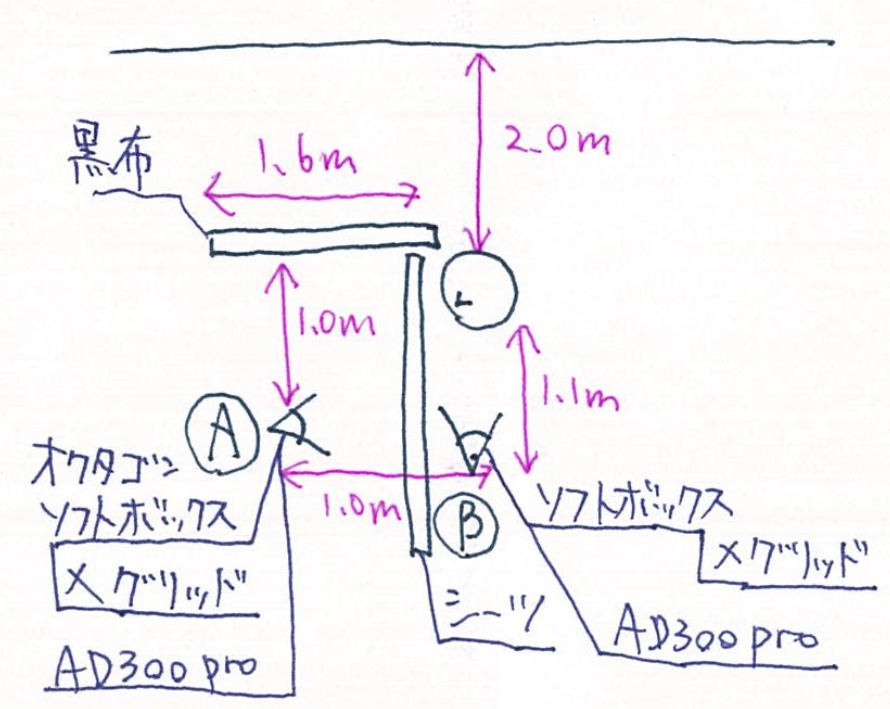 2.0m
黒布
1.6m
1.0m
1.1m
A
オクタゴン
ソフトボックス
×グリッド
AD300pro
1.0m
B
シーツ
ソフトボックス
×グリッド
AD300pro